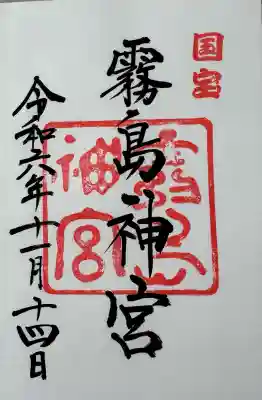 国宝
霧島神宮
霧島神宮
令和六年十一月十四日